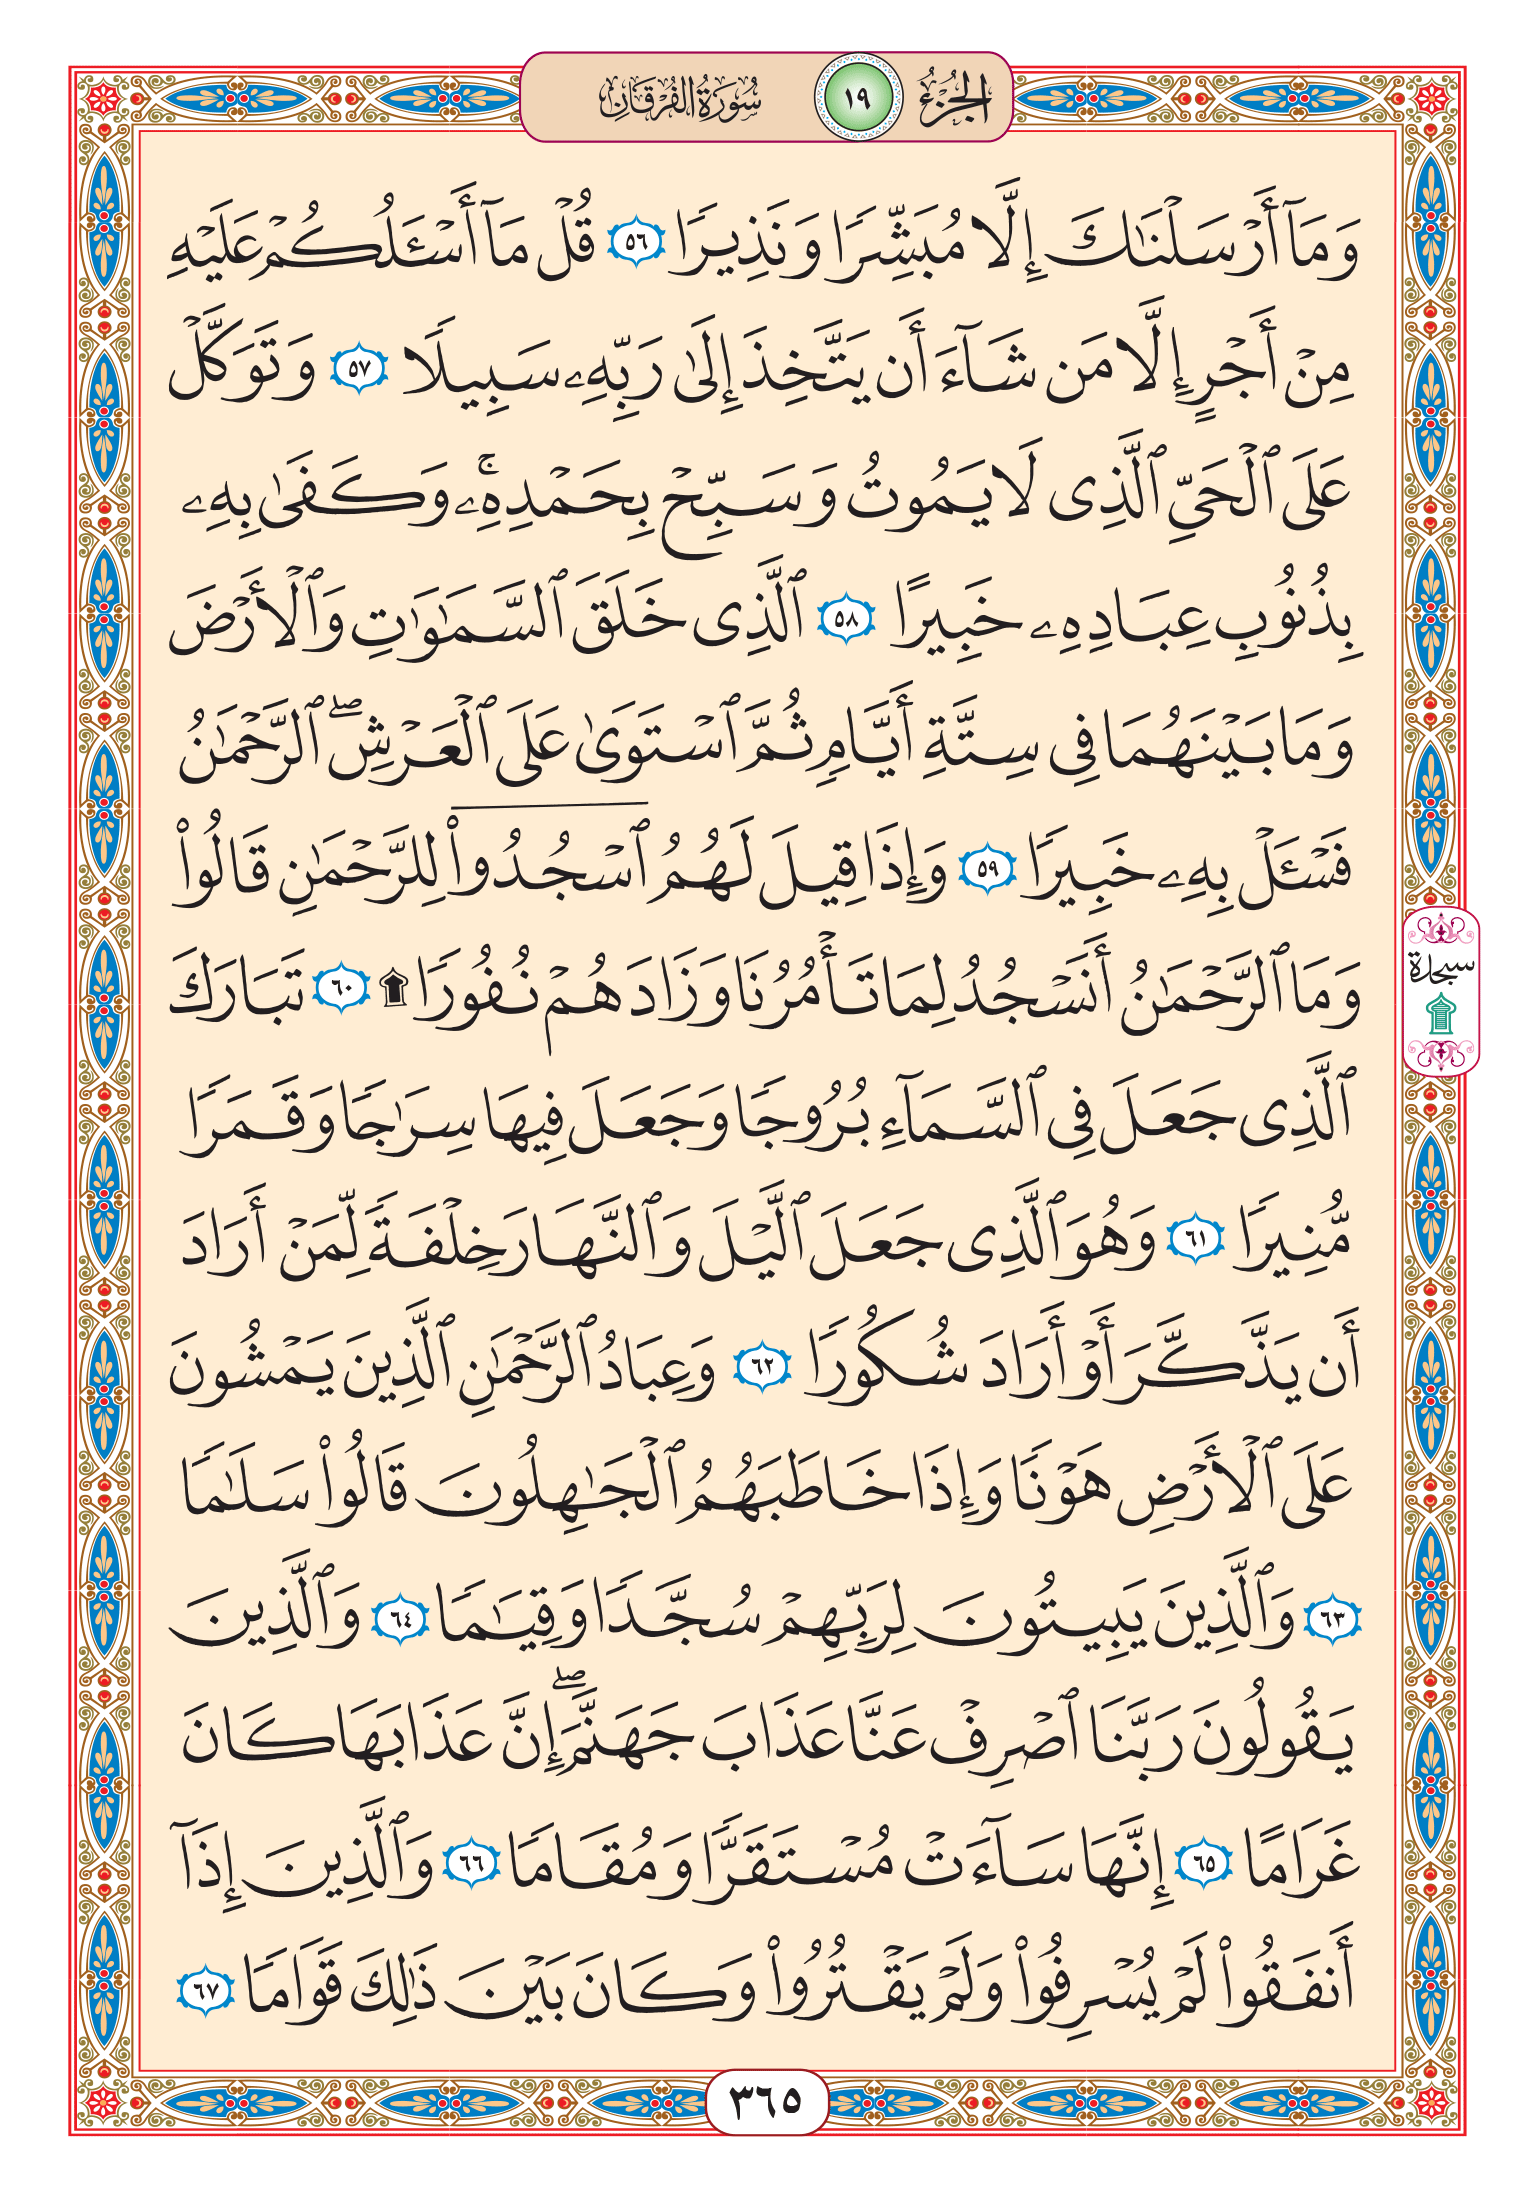 الجزء ١٩ سورة الفرقان
وَمَآ أَرْسَلْنَٰكَ إِلَّا مُبَشِّرًا وَنَذِيرًا ٥٦ قُلْ مَآ أَسْـَٔلُكُمْ عَلَيْهِ
مِنْ أَجْرٍ إِلَّا مَن شَآءَ أَن يَتَّخِذَ إِلَىٰ رَبِّهِۦ سَبِيلًا ٥٧ وَتَوَكَّلْ
عَلَى ٱلْحَىِّ ٱلَّذِى لَا يَمُوتُ وَسَبِّحْ بِحَمْدِهِۦ ۚ وَكَفَىٰ بِهِۦ
بِذُنُوبِ عِبَادِهِۦ خَبِيرًا ٥٨ ٱلَّذِى خَلَقَ ٱلسَّمَٰوَٰتِ وَٱلْأَرْضَ
وَمَا بَيْنَهُمَا فِى سِتَّةِ أَيَّامٍ ثُمَّ ٱسْتَوَىٰ عَلَى ٱلْعَرْشِ ۖ ٱلرَّحْمَٰنُ
فَسْـَٔلْ بِهِۦ خَبِيرًا ٥٩ وَإِذَا قِيلَ لَهُمُ ٱسْجُدُوا۟ لِلرَّحْمَٰنِ قَالُوا۟
وَمَا ٱلرَّحْمَٰنُ أَنَسْجُدُ لِمَا تَأْمُرُنَا وَزَادَهُمْ نُفُورًا ۩ ٦٠ تَبَارَكَ
سجدة
ٱلَّذِى جَعَلَ فِى ٱلسَّمَآءِ بُرُوجًا وَجَعَلَ فِيهَا سِرَٰجًا وَقَمَرًا
مُّنِيرًا ٦١ وَهُوَ ٱلَّذِى جَعَلَ ٱلَّيْلَ وَٱلنَّهَارَ خِلْفَةً لِّمَنْ أَرَادَ
أَن يَذَّكَّرَ أَوْ أَرَادَ شُكُورًا ٦٢ وَعِبَادُ ٱلرَّحْمَٰنِ ٱلَّذِينَ يَمْشُونَ
عَلَى ٱلْأَرْضِ هَوْنًا وَإِذَا خَاطَبَهُمُ ٱلْجَٰهِلُونَ قَالُوا۟ سَلَٰمًا
٦٣ وَٱلَّذِينَ يَبِيتُونَ لِرَبِّهِمْ سُجَّدًا وَقِيَٰمًا ٦٤ وَٱلَّذِينَ
يَقُولُونَ رَبَّنَا ٱصْرِفْ عَنَّا عَذَابَ جَهَنَّمَ ۖ إِنَّ عَذَابَهَا كَانَ
غَرَامًا ٦٥ إِنَّهَا سَآءَتْ مُسْتَقَرًّا وَمُقَامًا ٦٦ وَٱلَّذِينَ إِذَآ
أَنفَقُوا۟ لَمْ يُسْرِفُوا۟ وَلَمْ يَقْتُرُوا۟ وَكَانَ بَيْنَ ذَٰلِكَ قَوَامًا ٦٧
٣٦٥